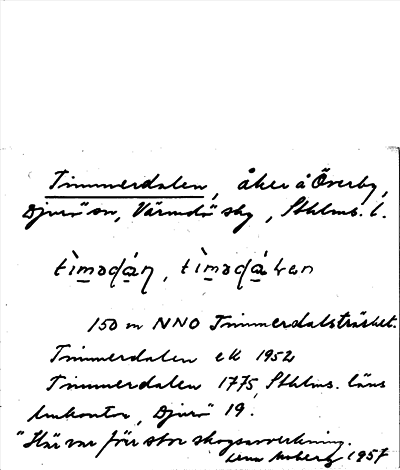 Timmerdalen, åker å Överby,
Djurö sn, Värmdö skg, Sthlms. l.
tìmədáη, tìmədáƚən
150 m NNO Timmerdalsträsket.
Timmerdalen ek 1952
Timmerdalen 1775, Sthlms. läns
lmkontor, Djurö 19.
"Här var förr stor skogsavverkning.
Lena Moberg 1957